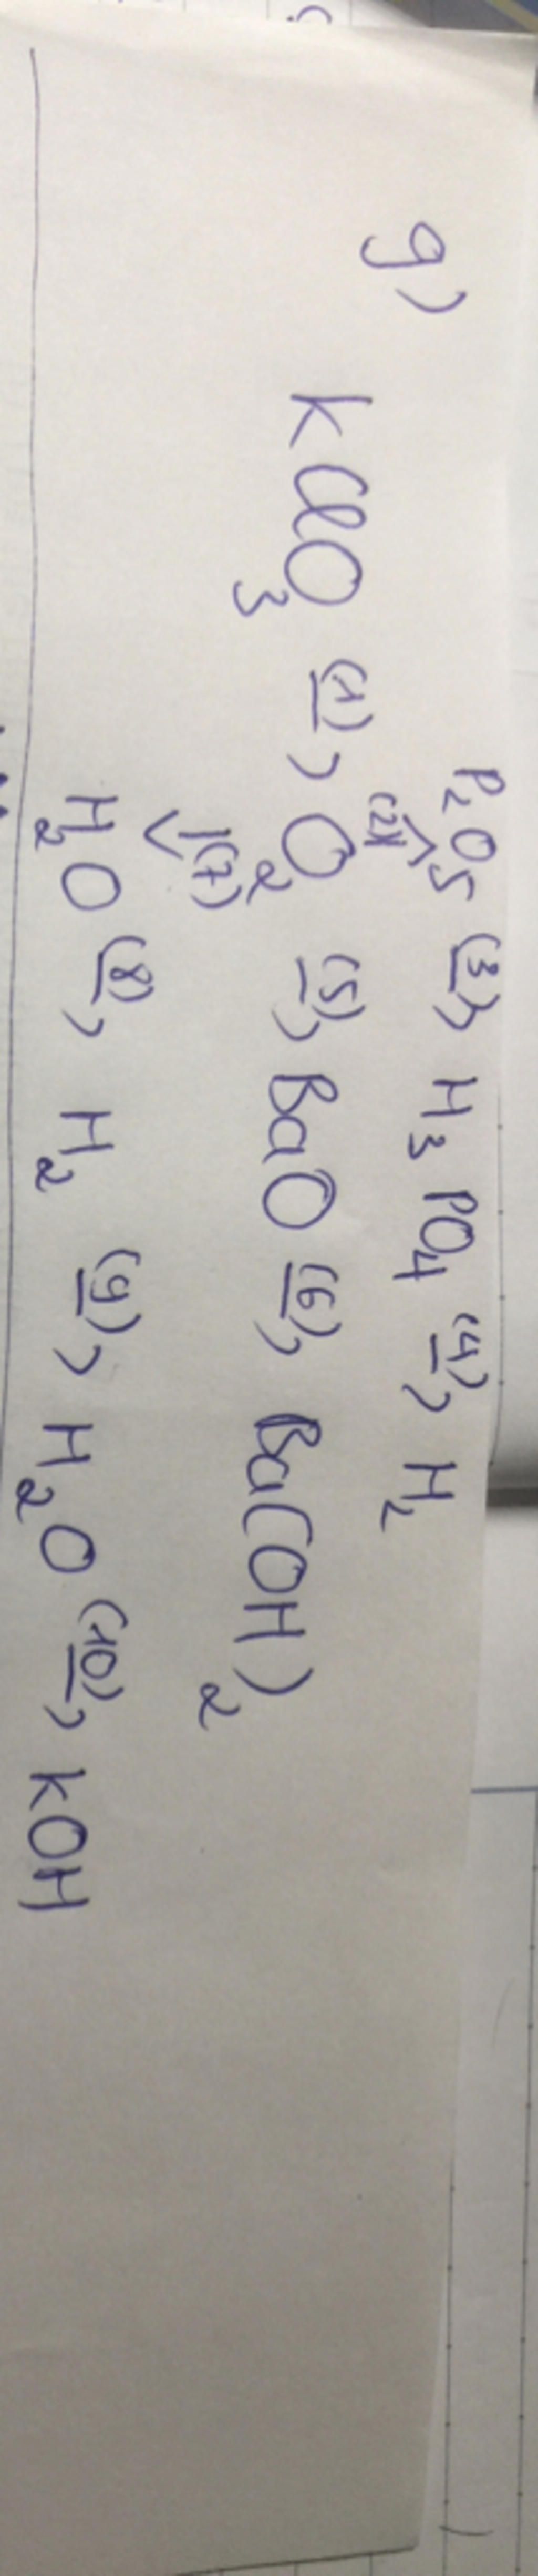 P2O5 (3)→ H3PO4 (4)→ H2
(2)↑
g) KClO3 (1)→ O2 (5)→ BaO (6)→ Ba(OH)2
↓(7)
H2O (8)→ H2 (9)→ H2O (10)→ KOH